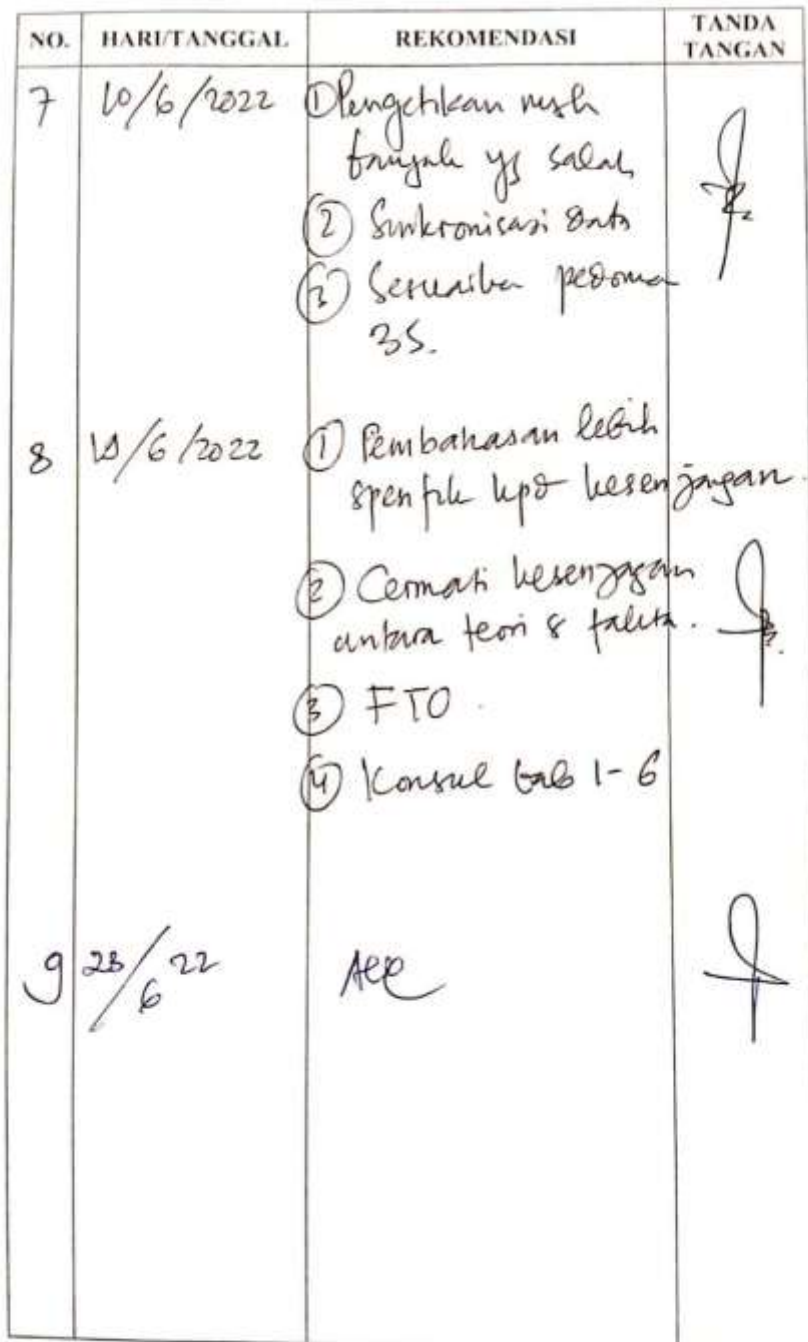 NO. HARI/TANGGAL REKOMENDASI TANDA TANGAN
7 10/6/2022 ① Pengetikan msh
banyak yg salah
② Sinkronisasi data
③ Sesuaika pedoma
3S.
8 /6/2022 ① Pembahasan lebih
spesifik kpd kesenjangan.
② Cermati kesenjagan
antara teori & fakta.
③ FTO.
④ Konsul bab 1-6
9 23/6 22 Acc